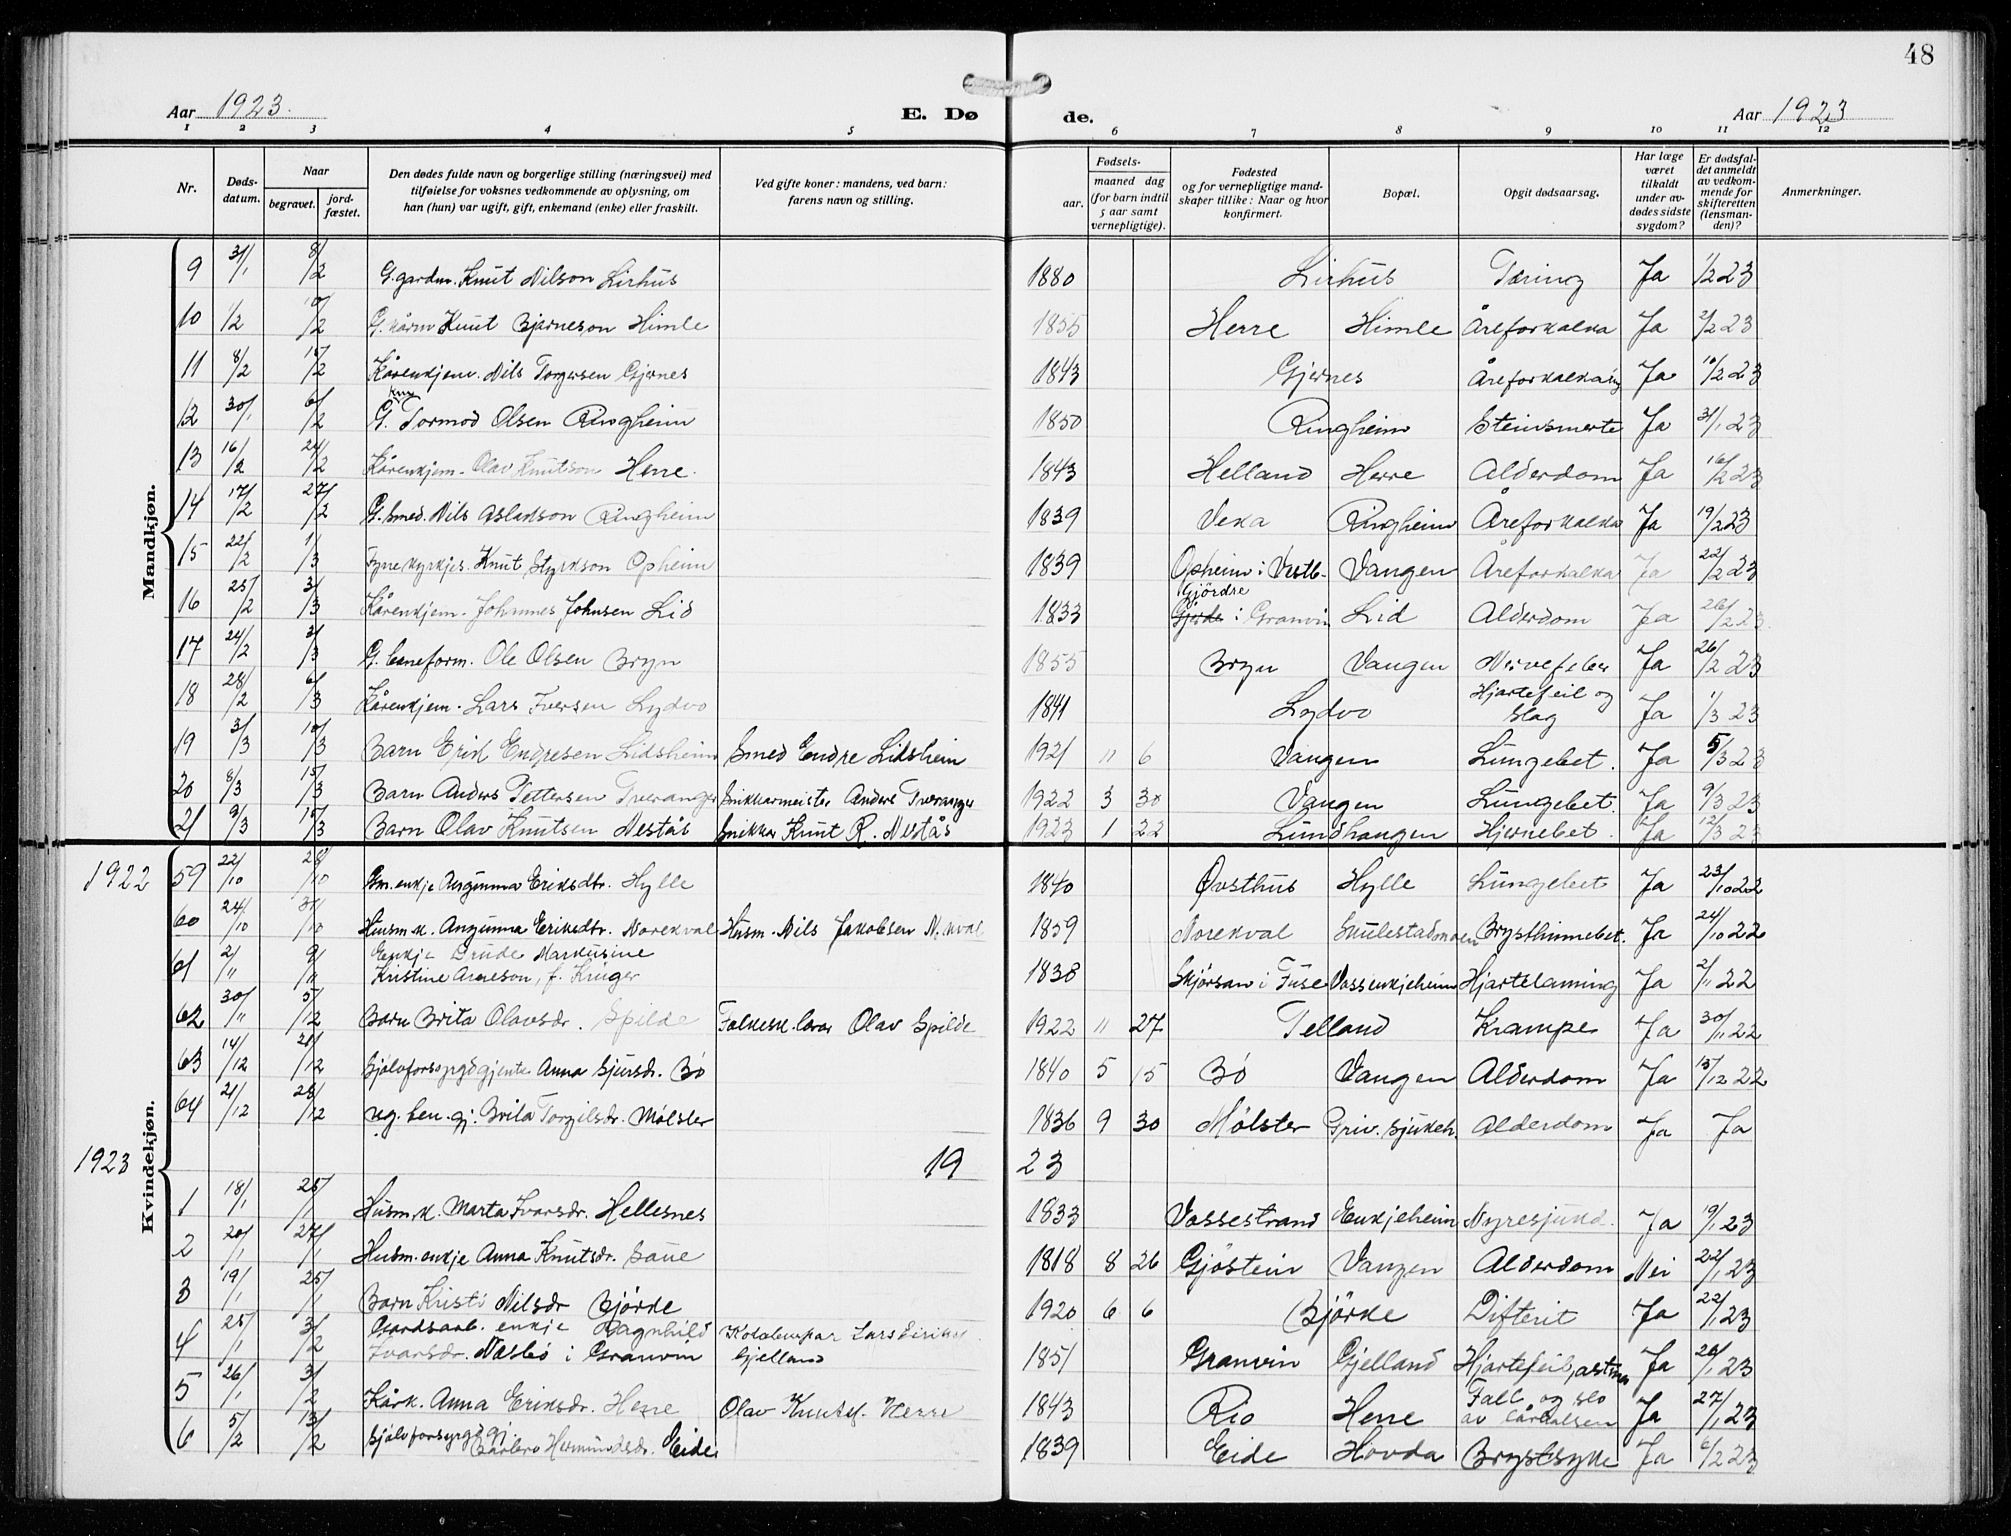 48
Aar 1923.
E. Døde.
Aar 1923
1 2 3 4 5 6 7 8 9 10 11 12
Nr.
Dødsdatum.
Naar
begravet.
jordfæstet.
Den dødes fulde navn og borgerlige stilling (næringsvei) med
tilføielse for voksnes vedkommende av oplysning, om
han (hun) var ugift, gift, enkemand (enke) eller fraskilt.
Ved gifte koner: mandens, ved barn:
farens navn og stilling.
Fødsels-
aar.
maaned dag
(for barn indtil
5 aar samt
vernepligtige).
Fødested
og for vernepligtige mandskaper tillike: Naar og hvor
konfirmert.
Bopæl.
Opgit dødsaarsag.
Har læge
været
tilkaldt
under avdødes sidste
sygdom?
Er dødsfaldet anmeldt
av vedkommende for
skifteretten
(lensmanden)?
Anmerkninger.
Mandkjøn.
9 31/1 8/2 G. gardm. Knut Nilson Lirhus 1880 Lirhus Tæring Ja 1/2 23
10 1/2 10/2 G. kårm Knut Bjarneson Himle 1855 Herre Himle Åreforkalka Ja 2/2 23
11 8/2 15/2 Kårenkjem. Nils Torgersen Gjernes 1843 Gjernes Åreforkalkaing Ja 10/2 23
12 30/1 6/2 G. Tormod Olsen Ringheim 1850 Ringheim Steinsmerte Ja 31/1 23
13 16/2 24/2 Kårenkjem. Olav Knutson Herre. 1843 Helland Herre Alderdom Ja 16/2 23
14 17/2 27/2 G. smed. Nils Aslakson Ringheim 1839 Veka Ringheim Åreforkalka Ja 19/2 23
15 22/2 1/3 Fyrr kyrkjes. Knut Styrkson Opheim 1839 Opheim i Vestb. Vangen Åreforkalka Ja 22/2 23
16 25/2 3/3 Kårenkjem. Johannes Johnsen Lid 1833 Gjördre Gjerde i Granvin Lid Alderdom Ja 26/2 23
17 24/2 3/3 G. Ole Olsen Bryn 1855 Bryn Vangen Nervefeber Ja 26/2 23
18 28/2 6/3 Kårenkjem. Lars Iversen Lydvo 1841 Lydvo Hjartefeil og slag Ja 1/3 23
19 3/3 10/3 Barn Erik Endresen Lidsheim Smed Endre Lidsheim 1921 11 6 Vangen Lungebet. Ja 5/3 23
20 8/3 15/3 Barn Anders Pettersen Tveranger Snikkarmeister Anders Tveranger 1922 3 30 Vangen Lungebet. Ja 9/3 23
21 9/3 15/3 Barn Olav Knutsen Nestås Snikkar Knut R. Nestås 1923 1 22 Lundhaugen Hjernebet. Ja 12/3 23
Kvindekjøn.
1922 59 22/10 28/10 Gm. enkje Angunna Eriksdtr. Hylle 1840 Øvsthus Hylle Lungebet Ja 23/10 22
60 24/10 31/10 Husm. k. Angunna Eriksdtr. Norekval Husm. Nils Jakobsen N. kval 1859 Norekval Skulestadmoen Brysthinnebet. Ja 24/10 22
61 2/11 9/11 Enkje Drude Markusine
Kristine Arneson, f. Krüger 1838 Skjørsan i Fuse Vossenkjeheim Hjartelaming Ja 2/11 22
62 30/11 5/12 Barn Brita Olavsdr. Spilde Folkesk. lærar Olav Spilde 1922 11 27 Telland Krampe Ja 30/11 22
63 14/12 21/12 Sjølvforsyrgd gjente Anna Sjursdr. Bø 1840 5 15 Bø Vangen Alderdom Ja 15/12 22
64 21/12 28/12 ug. Brita Torgilsdr. Mølster 1836 9 30 Mølster Priv. sjukeh. Alderdom Ja Ja
1923 1923
1 18/1 25/1 Husm. k. Marta Ivarsdr. Hellesnes 1833 Vossestrand Enkjeheim Nyresjukd. Ja 19/1 23
2 20/1 27/1 Husm. enkje Anna Knutsdr. Saue 1818 8 26 Gjøstein Vangen Alderdom Nei 22/1 23
3 19/1 25/1 Barn Kristi Nilsdr Bjørke 1920 6 6 Bjørke Difterit Ja 22/1 23
4 25/1 3/2 Gardsarb. enkje Ragnhild
Ivarsdr. Nesbø i Granvin Lars Eirikss.
Gjelland 1851 Granvin Gjelland Hjartefeil, astma Ja 26/1 23
5 26/1 3/2 Kårk. Anna Eriksdr. Herre Olav Knutss. Herre 1843 Rio Herre Fall og slo av lårhalsen Ja 27/1 23
6 5/2 13/2 Sjølvforsyrgd gj. Barbro Hermundsdr. Eide 1839 Eide Hovda Brystsykke Ja 6/2 23